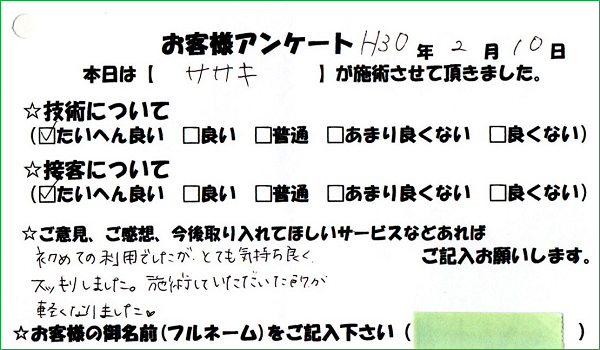 お客様アンケート H30 年 2 月 10 日
本日は【 ササキ 】が施術させて頂きました。
☆技術について
(☑たいへん良い □良い □普通 □あまり良くない □良くない)
☆接客について
(☑たいへん良い □良い □普通 □あまり良くない □良くない)
☆ご意見、ご感想、今後取り入れてほしいサービスなどあれば
ご記入お願いします。
初めての利用でしたが、とても気持ち良く、
スッキリしました。施術していただいた所が
軽くなりました♥
☆お客様の御名前(フルネーム)をご記入下さい (